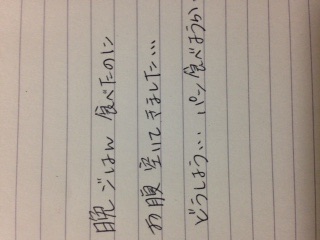 晩ごはん食べたのに
お腹空いてきました…
どうしよう… パン食べようかな